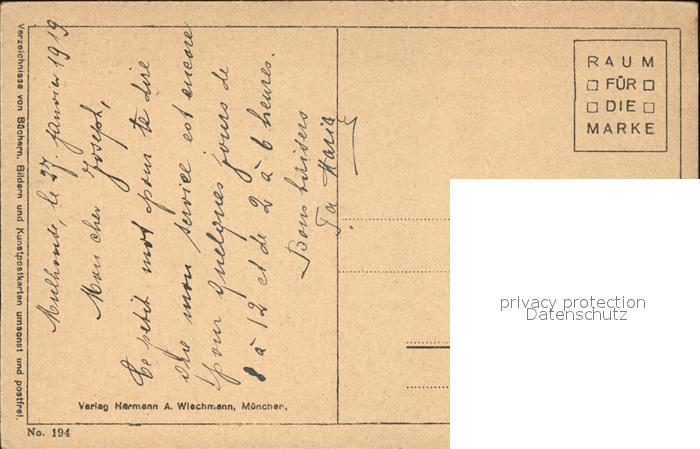 Mulhouse, le 27. Janvier 1919
Mon cher Joseph,
Ce petit mot pour te dire
que mon service est encore
pour quelques jours de
8 à 12 et de 2 à 6 heures.
Bons baisers
Ta Maria
Verzeichnisse von Büchern, Bildern und Kunstpostkarten umsonst und postfrei.
Verlag Hermann A. Wiechmann, München.
No. 194
RAUM
FÜR
DIE
MARKE
privacy protection
Datenschutz